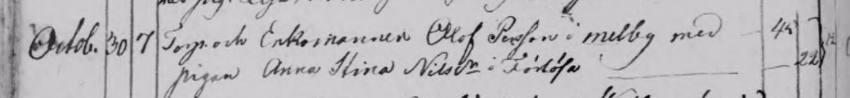 Octob. 30 7 Torp. och Enkomannen Olof Persson i Melby med 45
pigan Anna Stina Nilsdr i Förlösa 22